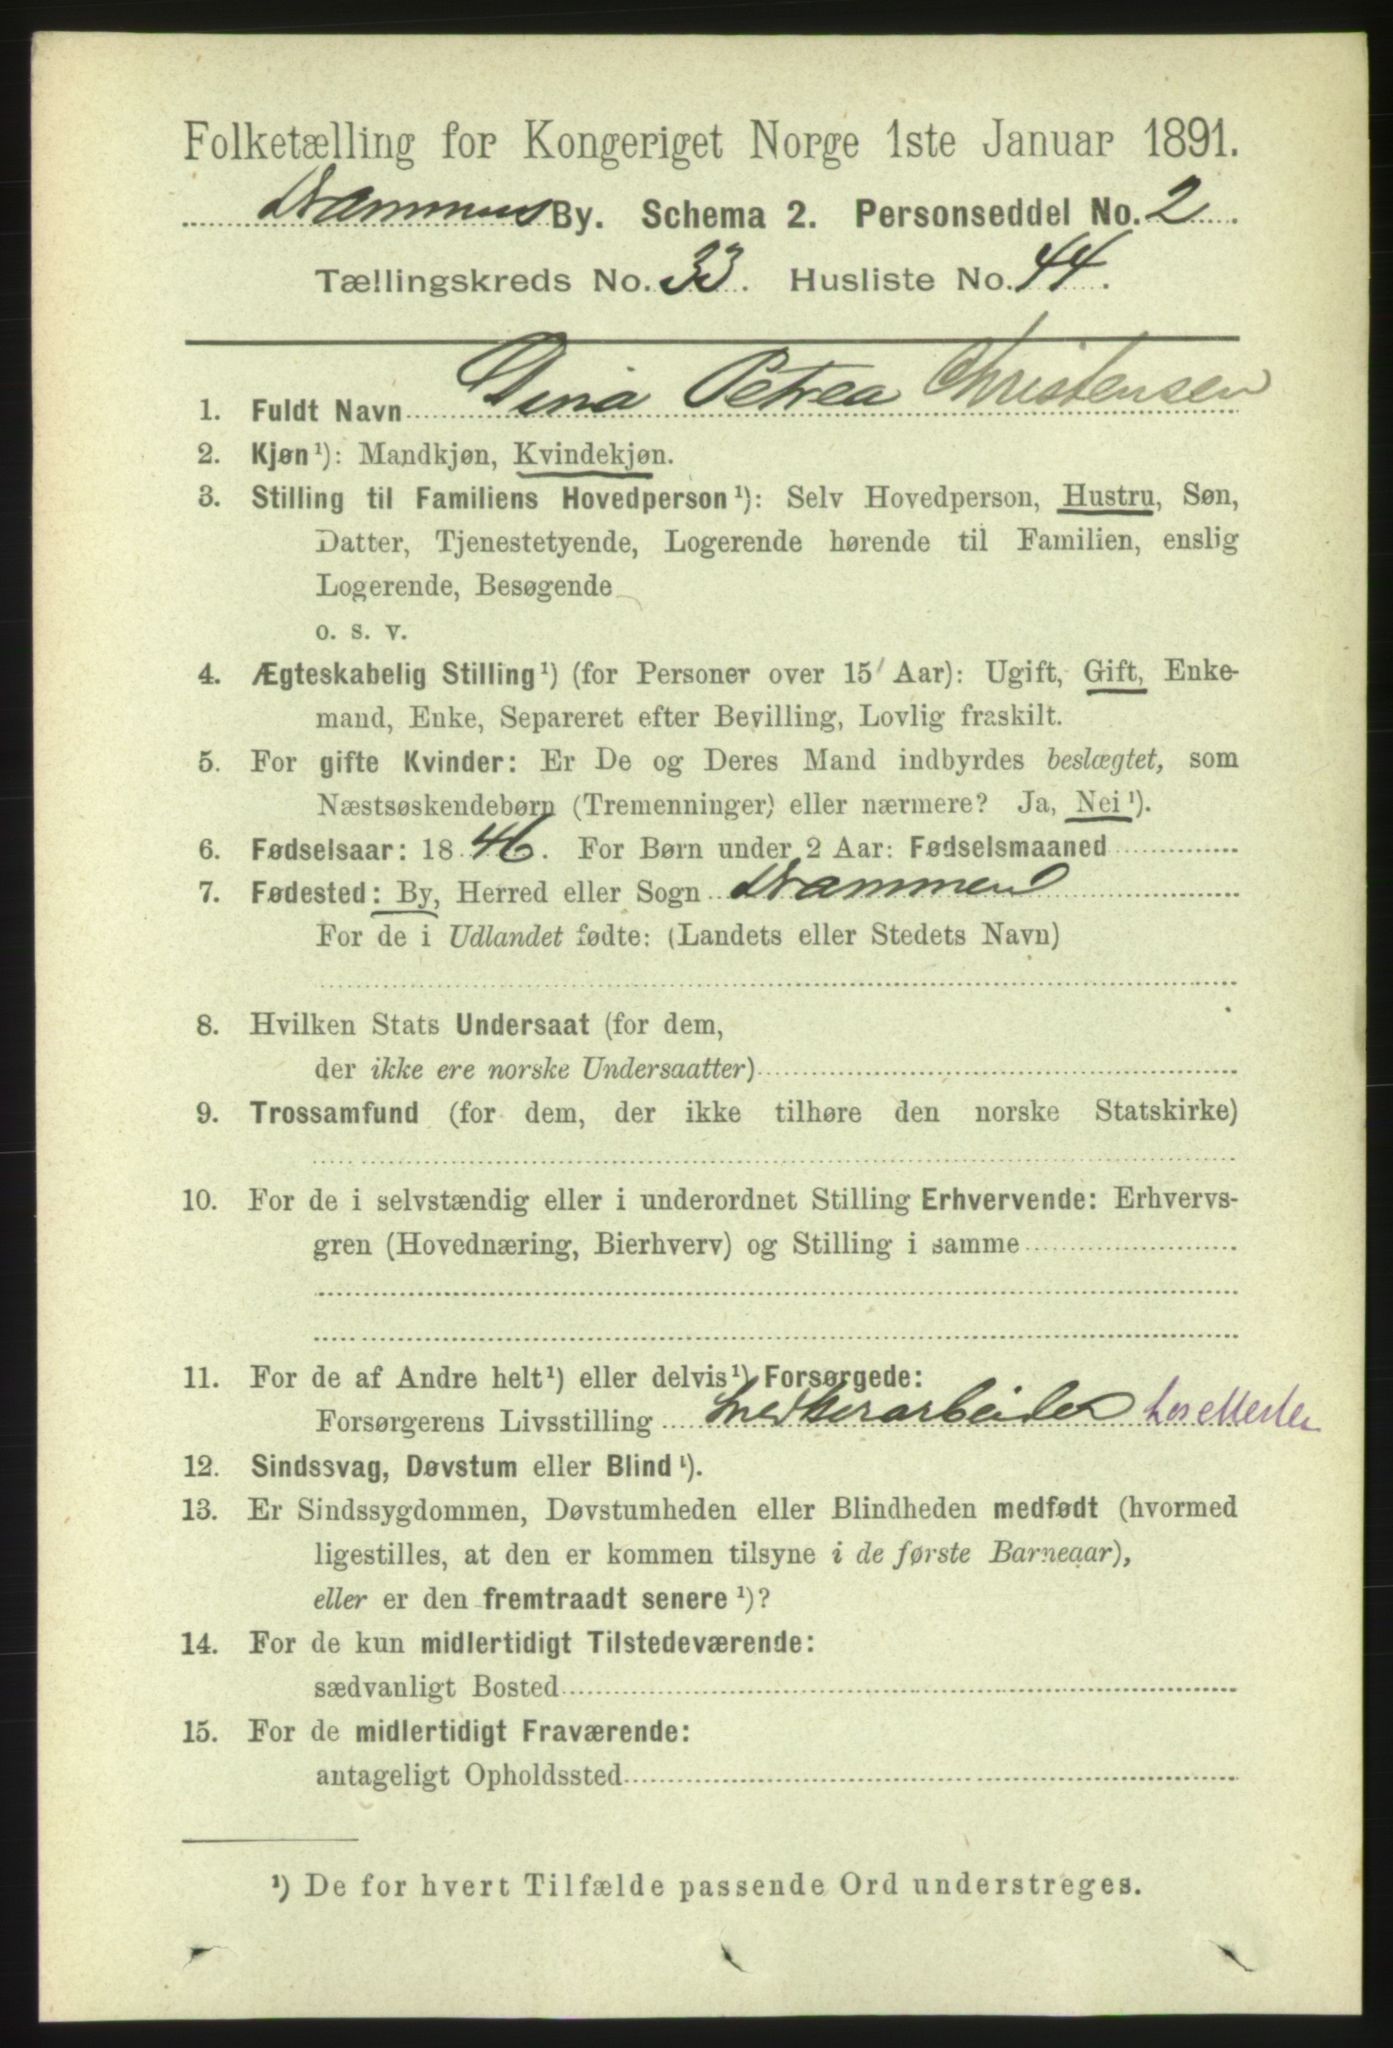 Folketælling for Kongeriget Norge 1ste Januar 1891.
Drammens By. Schema 2. Personseddel No. 2.
Tællingskreds No. 33. Husliste No. 44.
1. Fuldt Navn Dina Petrea Christensen
2. Kjøn¹): Mandkjøn, Kvindekjøn.
3. Stilling til Familiens Hovedperson¹): Selv Hovedperson, Hustru, Søn,
Datter, Tjenestetyende, Logerende hørende til Familien, enslig
Logerende, Besøgende
o. s. v.
4. Ægteskabelig Stilling¹) (for Personer over 15 Aar): Ugift, Gift, Enke-
mand, Enke, Separeret efter Bevilling, Lovlig fraskilt.
5. For gifte Kvinder: Er De og Deres Mand indbyrdes beslægtet, som
Næstsøskendebørn (Tremenninger) eller nærmere? Ja, Nei¹).
6. Fødselsaar: 1846. For Børn under 2 Aar: Fødselsmaaned
7. Fødested: By, Herred eller Sogn Drammen
For de i Udlandet fødte: (Landets eller Stedets Navn)
8. Hvilken Stats Undersaat (for dem,
der ikke ere norske Undersaatter)
9. Trossamfund (for dem, der ikke tilhøre den norske Statskirke)
10. For de i selvstændig eller i underordnet Stilling Erhvervende: Erhvervs-
gren (Hovednæring, Bierhverv) og Stilling i samme
11. For de af Andre helt¹) eller delvis¹) Forsørgede:
Forsørgerens Livsstilling Snedkerarbeider
12. Sindssvag, Døvstum eller Blind¹).
13. Er Sindssygdommen, Døvstumheden eller Blindheden medfødt (hvormed
ligestilles, at den er kommen tilsyne i de første Barneaar),
eller er den fremtraadt senere¹)?
14. For de kun midlertidigt Tilstedeværende:
sædvanligt Bosted
15. For de midlertidigt Fraværende:
antageligt Opholdssted
¹) De for hvert Tilfælde passende Ord understreges.